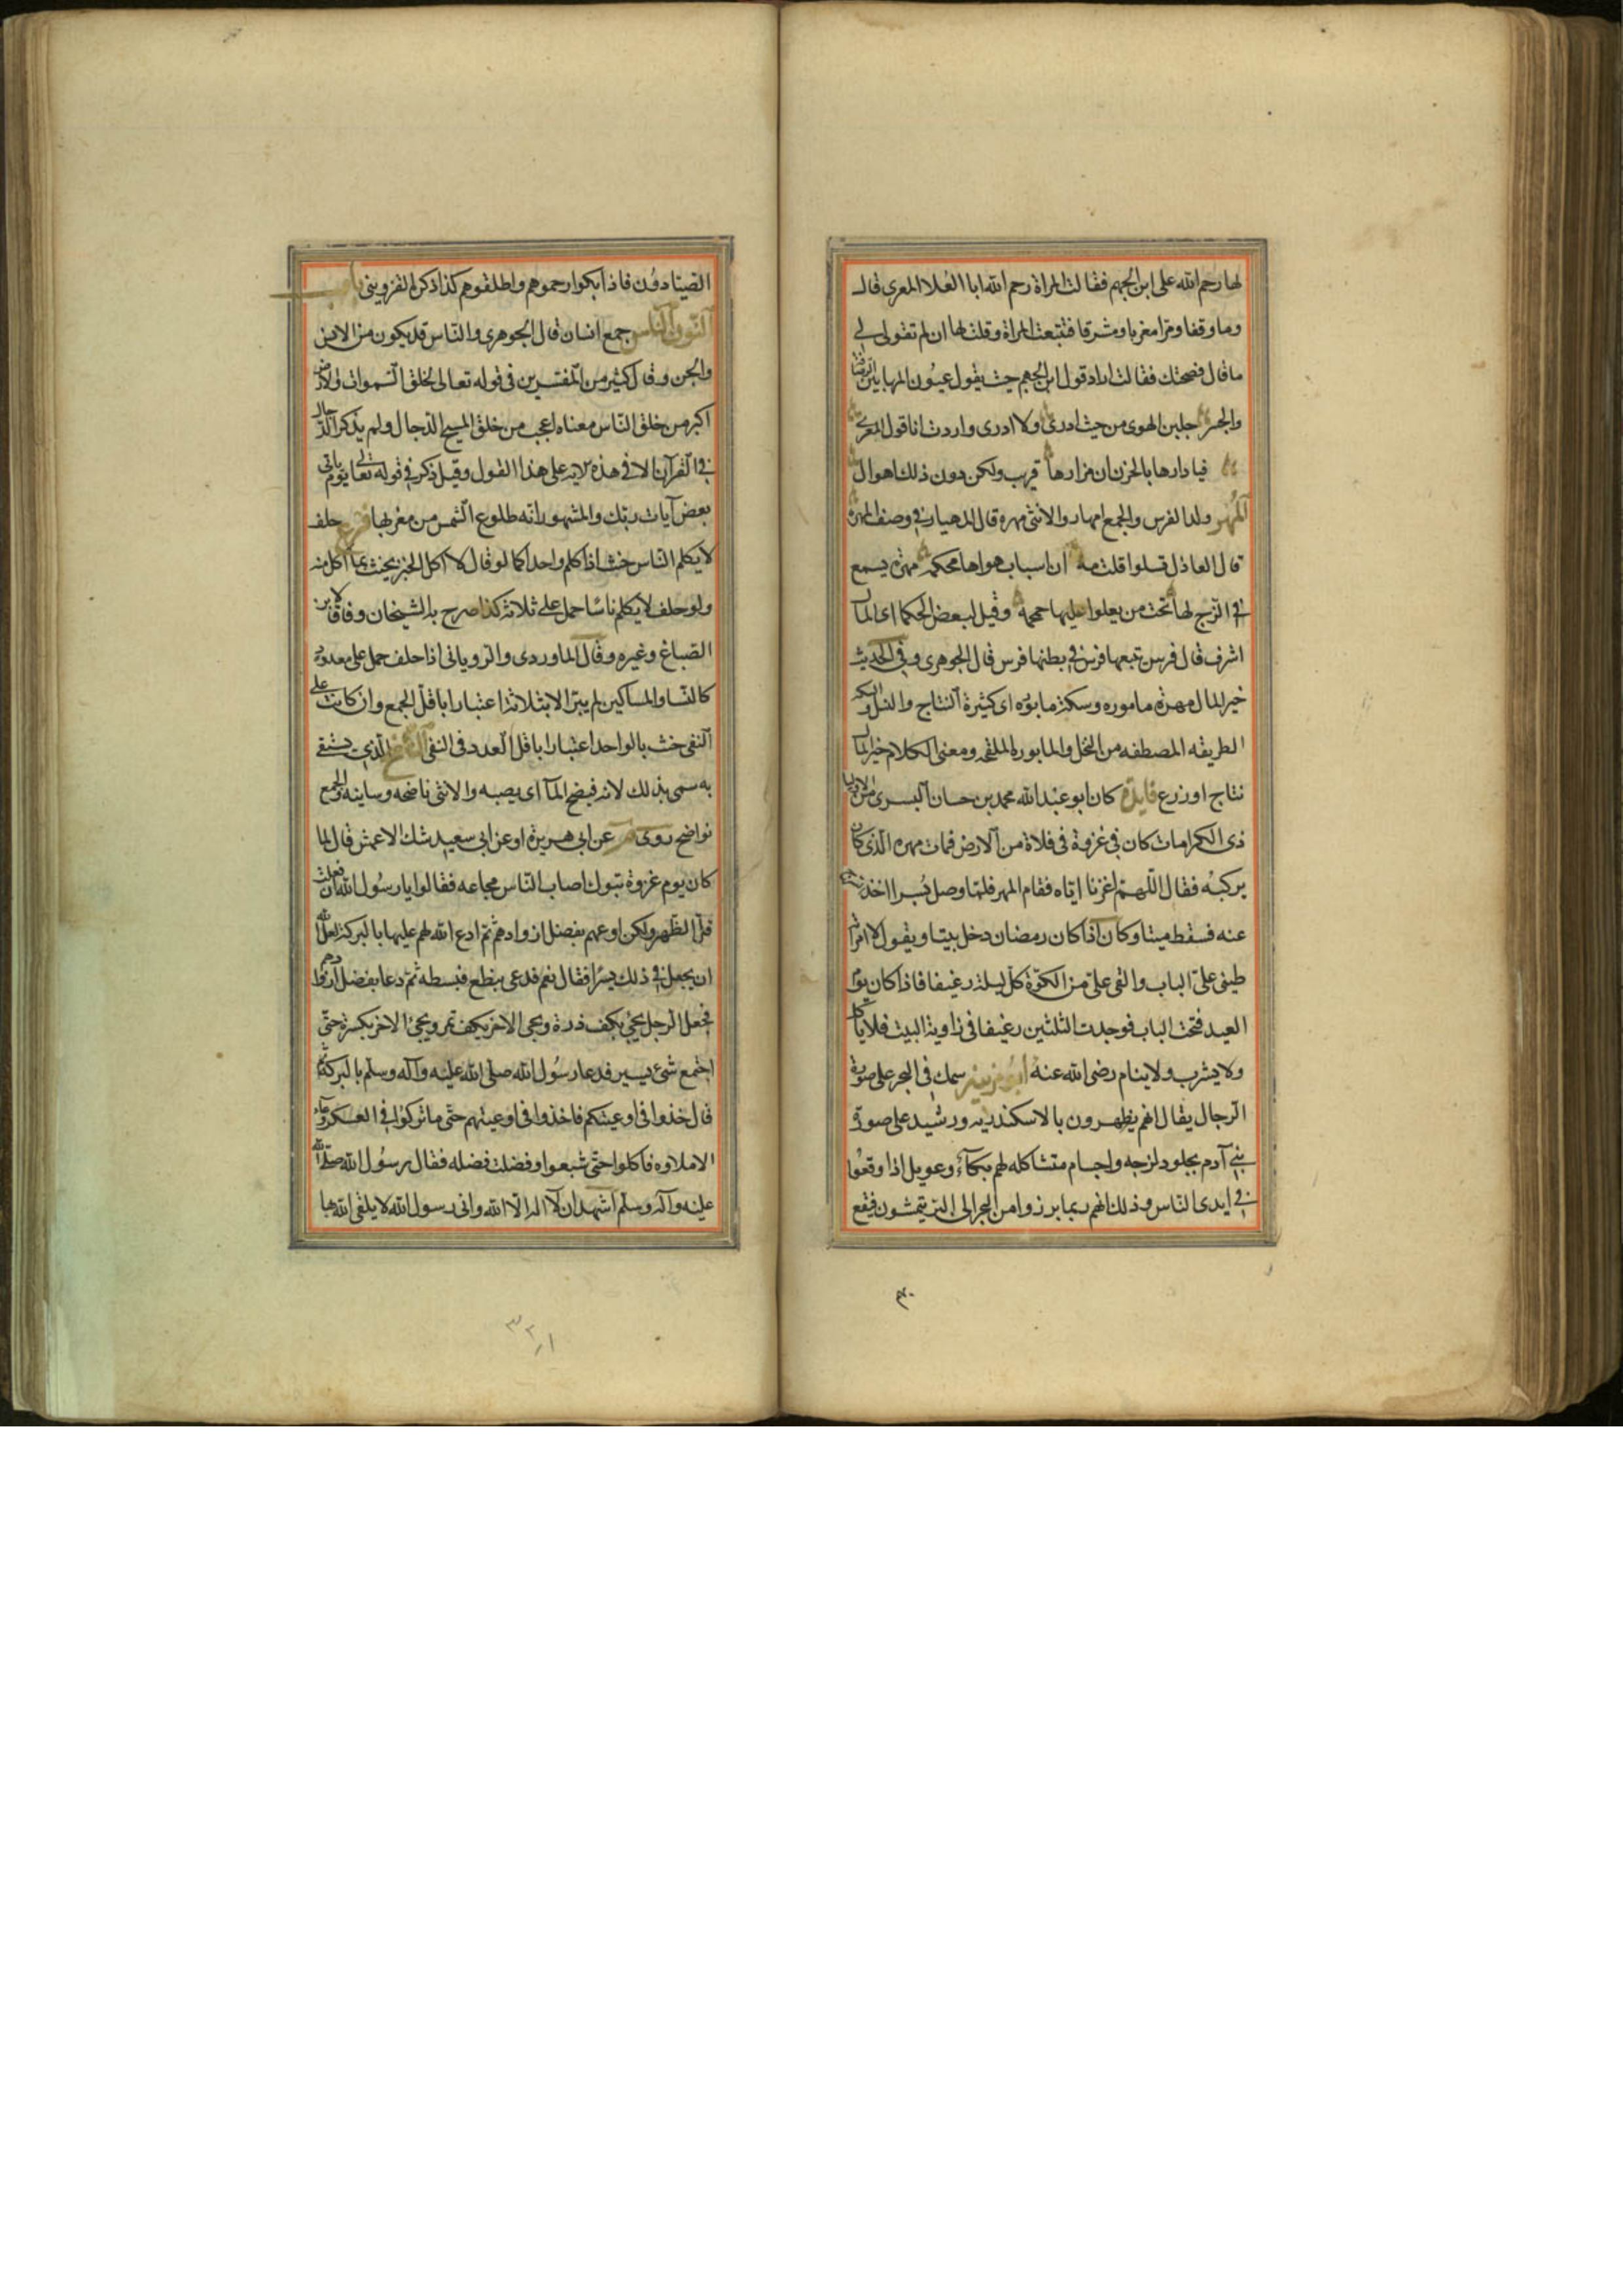 لها رحم الله على ابن الجهم فقالت المراة رحم الله ابا العلا المعرى قال
وما وقفا ومرا مغربا ومشرقا فتبعت المراة وقلت لها ان لم تقولى لى
ما قال فضحتك فقالت اراد قول ابن الجهم حيث يقول عيون المها بين الرصافة
والجسر جلبن الهوى من حيث ادرى ولا ادرى واردت انا قول المعرى
فيا دارها بالحزن ان مزارها قريب ولكن دون ذلك اهوال
المهر ولد الفرس والجمع امهار والانثى مهره قال المهيار فى وصف المهرة
قال العاذل تسلوا قلت مه ان اسباب هواها محكمه مهرة يسمع
فى السرج لها تحت من يعلوا عليها حمحمة وقيل لبعض الحكما اى المال
اشرف قال فرس تتبعها فرس فى بطنها فرس قال الجوهرى وفى الحديث
خير المال مهرة ماموره وسكة مابوره اى كثيرة النتاج والنسل والسكه
الطريقه المصطفه من النخل والمابوره الملقحه ومعنى الكلام خير المال
نتاج او زرع فايدة كان ابو عبد الله محمد بن حسان البسرى من الاوليا
ذى الكرامات كان فى غزوة فى فلاة من الارض فمات مهره الذى كان
يركبه فقال اللهم اغزنا اياه فقام المهر فلما وصل بسرا اخذ سرجه
عنه فسقط ميتا وكان اذا كان رمضان دخل بيتا ويقول لامراته
طينى على الباب والقى على من الكوة كل ليلة رغيفا فاذا كان يوم
العيد فتحت الباب فوجدت الثلثين رغيفا فى زاوية البيت فلا ياكل
ولا يشرب ولا ينام رضى الله عنه ابو مزينه سمك فى البحر على صورة
الرجال يقال انهم يظهرون بالاسكندريه ورشيد على صورة
بنى آدم بجلود لزجه واجسام متشاكله لهم بكآء وعويل اذا وقعوا
فى ايدى الناس وذلك انهم ربما برزوا من البحر الى البر يتمشون فيقع
٣٠
الصيادون فاذا بكوا رحموهم واطلقوهم كذا ذكره القزوينى باب
النون الناس جمع انسان قال الجوهرى والناس قد يكون من الانس
والجن وقال كثير من المفسرين فى قوله تعالى لخلق السموات والارض
اكبر من خلق الناس معناه اعجب من خلق المسيح الدجال ولم يذكر الدجال
فى القرآن الا فى هذه الايه على هذا القول وقيل ذكر فى قوله تعالى يوم ياتى
بعض آيات ربك والمشهور انه طلوع الشمس من مغربها فرع حلف
لا يكلم الناس حنث اذا كلم واحدا كما لو قال لا آكل الخبز يحنث بما اكل منه
ولو حلف لا يكلم ناسا حمل على ثلاثة كذا صرح به الشيخان وفاقا لابن
الصباغ وغيره وقال الماوردى والرويانى اذا حلف حمل على معدود
كالنسا والمساكين لم يبر الا بثلاثة اعتبارا باقل الجمع وان كانت على
النفى حنث بالواحد اعتبارا باقل العدد فى النفى الناضح الذى يستقى
به سمى بذلك لانه فيضح المآ اى يصبه والانثى ناضحه وساينه والجمع
نواضح روى م عن ابى هريرة او عن ابى سعيد شك الاعمش قال لما
كان يوم غزوة تبوك اصاب الناس مجاعه فقالوا يا رسول الله ان فعلت
قل الظهر ولكن اوعهم بفضل ازوادهم ثم ادع الله لهم عليها بالبركة لعل الله
ان يجعل فى ذلك يسرا فقال نعم فدعى بنطع فبسطه ثم دعا بفضل ازوادهم
فجعل الرجل يجئ بكف ذرة ويجى الاخر بكف تمر ويجئ الاخر بكسرة حتى
اجتمع شئ يسير فدعا رسول الله صلى الله عليه وآله وسلم بالبركة ثم
قال خذوا فى اوعيتكم فاخذوا فى اوعيتهم حتى ما تركوا فى العسكر وعاء
الا ملاوه فاكلوا حتى شبعوا وفضلت فضله فقال رسول الله صلى الله
عليه وآله وسلم اشهد ان لا اله الا الله وانى رسول الله لا يلقى الله بها
٣٢١